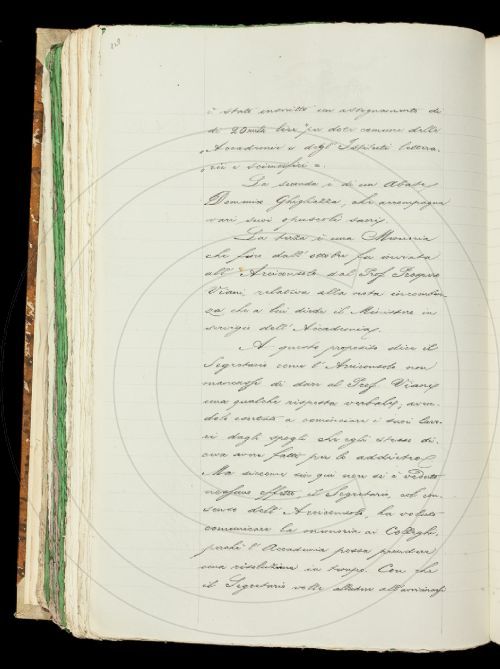 è stato inscritto un assegnamento di
di 20 mila lire "per dote comune delle
Accademie e degl' Istituti lettera-
rii e scientifici".
La seconda è di un Abate
Domenico Ghighella, che accompagna
vari suoi opuscoli sacri.
La terza è una Memoria
che fin dall' ottobre fu inviata
all' Arciconsolo dal Prof. Prospero
Viani, relativa alla nota incomben-
za che a lui diede il Ministero in
servigio dell' Accademia.
A questo proposito dice il
Segretario come l' Arciconsolo non
mancasse di dare al Prof. Viani
una qualche risposta verbale, 
 a cominciare i suoi lavo-
ri dagli spogli che egli stesso di-
ceva avere fatto per lo addietro.
Ma siccome sin qui non si è veduto
nessuno effetto, il Segretario, col con-
senso dell' Arciconsolo, ha voluto
comunicare la memoria ai Colleghi,
perché l' Accademia possa prendere
una risoluzione in tempo. Con che
il Segretario volle alludere all'avvicinarsi